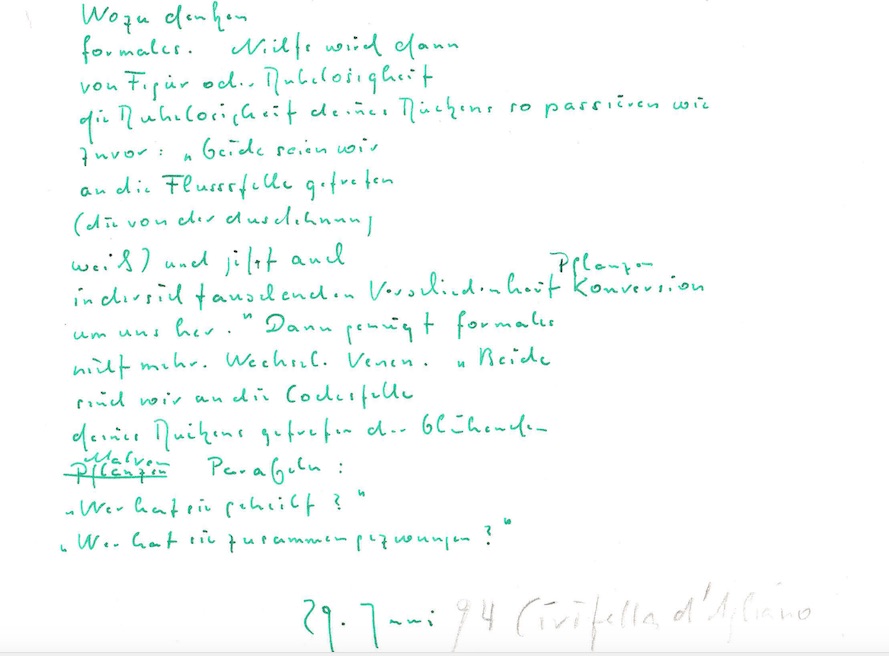 Wozu denken
formales. Nichts wird dann
von Figur od. Ruhelosigkeit
die Ruhelosigkeit deines Rückens so passieren wie
zuvor: „beide seien wir
an die Flussstelle getreten
(die von der Ausdehnung
weiß) und jetzt auch
in der sich tauschenden Verschiedenheit Pflanzen Konversion
um uns her." Dann genügt formales
nicht mehr. Wechsel. Venen. „Beide
sind wir an die Codestelle
deines Rückens getreten der blühenden
Malven Pflanzen Parabeln:
„Wer hat sie geheilt?"
„Wer hat sie zusammengezwungen?"
29. Juni 94 Civitella d'Agliano